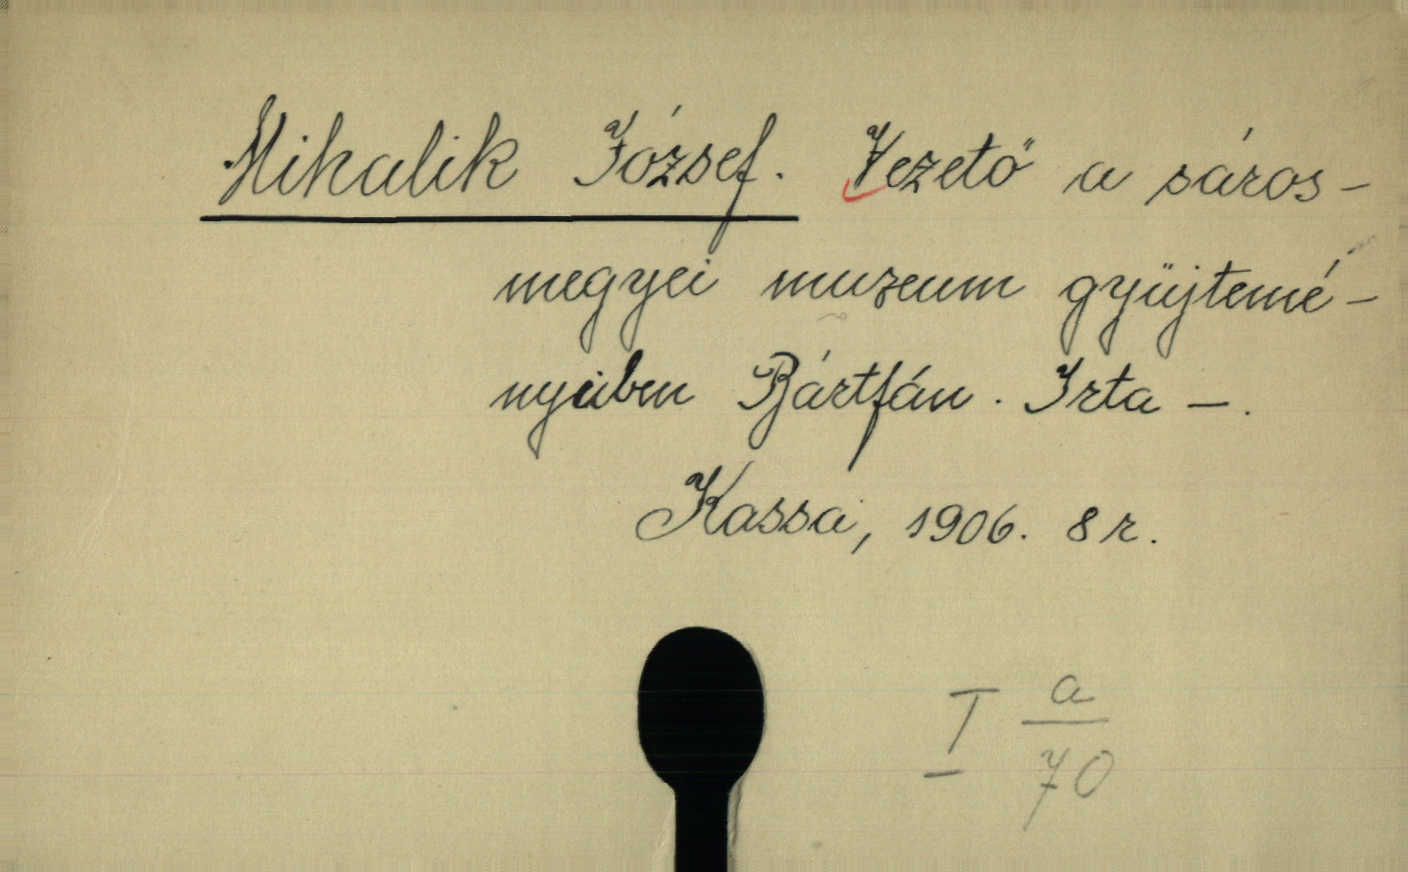 Mihalik József. Vezető a sáros-
megyei muzeum gyüjtemé-
nyeiben Bártfán. Irta -.
Kassa, 1906. 8 r.
I a/70